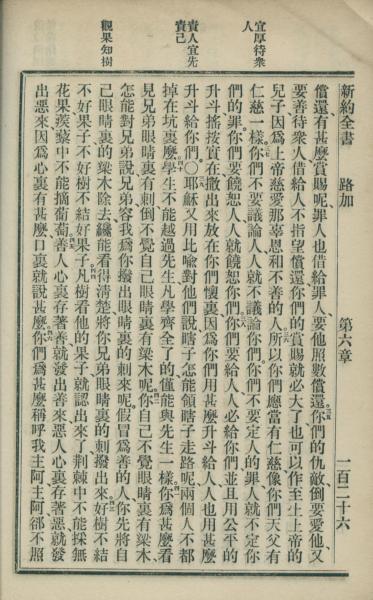 宜厚待衆
人
責人宜先
責己
觀果知樹
新約全書 路加 第六章 一百二十六
償還、有甚麽賞賜呢、罪人也借給罪人、要他照數償還、你們的仇敵、倒要愛他、又
要善待衆人、借給人不指望償還、你們的賞賜就必大了、也可以作至上上帝的
兒子、因爲上帝慈愛那辜恩和不善的人、所以你們應當有仁慈、像你們天父有
仁慈一樣、你們不要議論人、人就不議論你們、你們不要定人的罪、人就不定你
們的罪、你們要饒恕人、人就饒恕你們、你們要給人、人必給你們、並且用公平的
升斗、搖按實在、撒出來、放在你們懷裏、因爲你們用甚麽升斗給人、人也用甚麽
升斗給你們○耶穌又用比喻對他們說、瞎子怎能領瞎子走路呢、兩個人不都
掉在坑裏麽、學生不能越過先生、凡學齊全了的、僅能與先生一樣、你爲甚麽看
見兄弟眼睛裏有刺、倒不覺自己眼睛裏有梁木呢、你自己不覺眼睛裏有梁木、
怎能對兄弟說、兄弟、容我爲你撥出眼睛裏的刺來呢、假冒爲善的人、你先將自
己眼睛裏的梁木除去、纔能看得清楚、將你兄弟眼睛裏的刺撥出來、好樹不結
不好果子、不好樹不結好果子、凡樹看他的果子就認出來了、荊棘中不能採無
花果、蒺藜中不能摘葡萄、善人心裏存著善、就發出善來、惡人心裏存著惡、就發
出惡來、因爲心裏有甚麽、口裏就說甚麽、你們爲甚麽稱呼我主阿主阿、卻不照